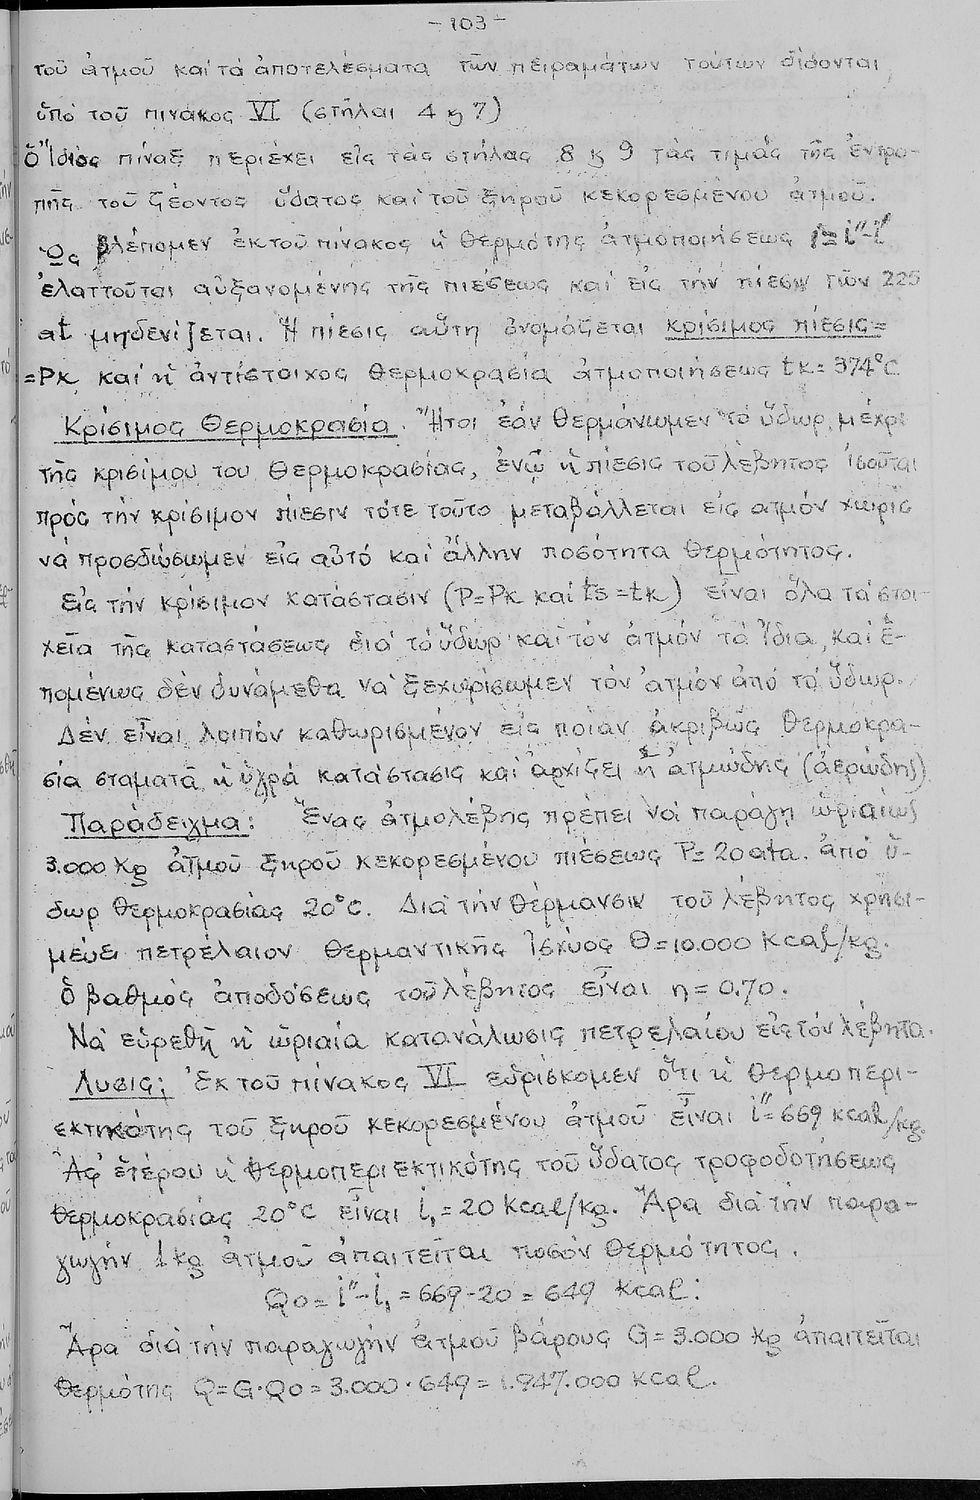 -103-
τοῦ ἀτμοῦ καί τά ἀποτελέσματα τῶν πειραμάτων τούτων δίδονται
ὑπό τοῦ πίνακος VI (στῆλαι 4 ϗ 7)
Ὁ ἴδιος πίναξ περιέχει εἰς τάς στήλας 8 ϗ 9 τάς τιμάς τῆς ἐντρο-
πῆς τοῦ ζέοντος ὕδατος καί τοῦ ξηροῦ κεκορεσμένου ἀτμοῦ.
Ὡς βλέπομεν ἐκ τοῦ πίνακος ἡ θερμότης ἀτμοποιήσεως r=i''-i'
ἐλαττοῦται αὐξανομένης τῆς πιέσεως καί εἰς τήν πίεσιν τῶν 225
at μηδενίζεται. Ἡ πίεσις αὕτη ὀνομάζεται κρίσιμος πίεσις=
=Pκ καί ἡ ἀντίστοιχος θερμοκρασία ἀτμοποιήσεως tκ=374°C
Κρίσιμος Θερμοκρασία. Ἤτοι ἐάν θερμάνωμεν τό ὕδωρ μέχρι
τῆς κρισίμου του θερμοκρασίας, ἐνῷ ἡ πίεσις τοῦ λέβητος ἰσοῦται
πρός τήν κρίσιμον πίεσιν τότε τοῦτο μεταβάλλεται εἰς ατμόν χωρίς
νά προσδώσωμεν εἰς αὐτό καί ἄλλην ποσότητα θερμότητος.
Εἰς τήν κρίσιμον κατάστασιν (P=Pκ καί ts=tκ) εἶναι ὅλα τά στοι-
χεῖα τῆς καταστάσεως διά τό ὕδωρ καί τόν ἀτμόν τά ἴδια, καί ἑ-
πομένως δέν δυνάμεθα νά ξεχωρίσωμεν τόν ἀτμόν ἀπό τό ὕδωρ.
Δέν εἶναι λοιπόν καθωρισμένον εἰς ποίαν ἀκριβῶς θερμοκρα-
σία σταματᾶ ἡ ὑγρά κατάστασις καί ἀρχίζει ἡ ἀτμώδης (ἀερώδης)
Παράδειγμα: Ἕνας ἀτμολέβης πρέπει νά παράγῃ ὡριαίως
3.000 Kg ἀτμοῦ ξηροῦ κεκορεσμένου πιέσεως P=20 ata. ἀπό ὕ-
δωρ θερμοκρασίας 20°C. Διά τήν θέρμανσιν τοῦ λέβητος χρησι-
μεύει πετρέλαιον θερμαντικῆς ἰσχύος Θ=10.000 Kcal/kg.
Ὁ βαθμός ἀποδόσεως τοῦ λέβητος εἶναι η=0.70.
Νά εὑρεθῇ ἡ ὡριαία κατανάλωσις πετρελαίου εἰς τόν λέβητα.
Λυσις; Ἐκ τοῦ πίνακος VI εὑρίσκομεν ὅτι ἡ θερμοπερι-
εκτικότης τοῦ ξηροῦ κεκορεσμένου ἀτμοῦ εἶναι i''=669 kcal/kg.
Ἀφ' ἑτέρου ἡ θερμοπεριεκτικότης τοῦ ὕδατος τροφοδοτήσεως
θερμοκρασίας 20°C εἶναι i₁=20 Kcal/kg. Ἄρα διά τήν παρα-
γωγήν 1 kg ἀτμοῦ ἀπαιτεῖται ποσόν θερμότητος.
Qo=i''-i₁=669-20=649 Kcal:
Ἄρα διά τήν παραγωγήν ἀτμοῦ βάρους G=3.000 Kg ἀπαιτεῖται
θερμότης Q=G·Qo=3.000·649=1.947.000 Kcal.